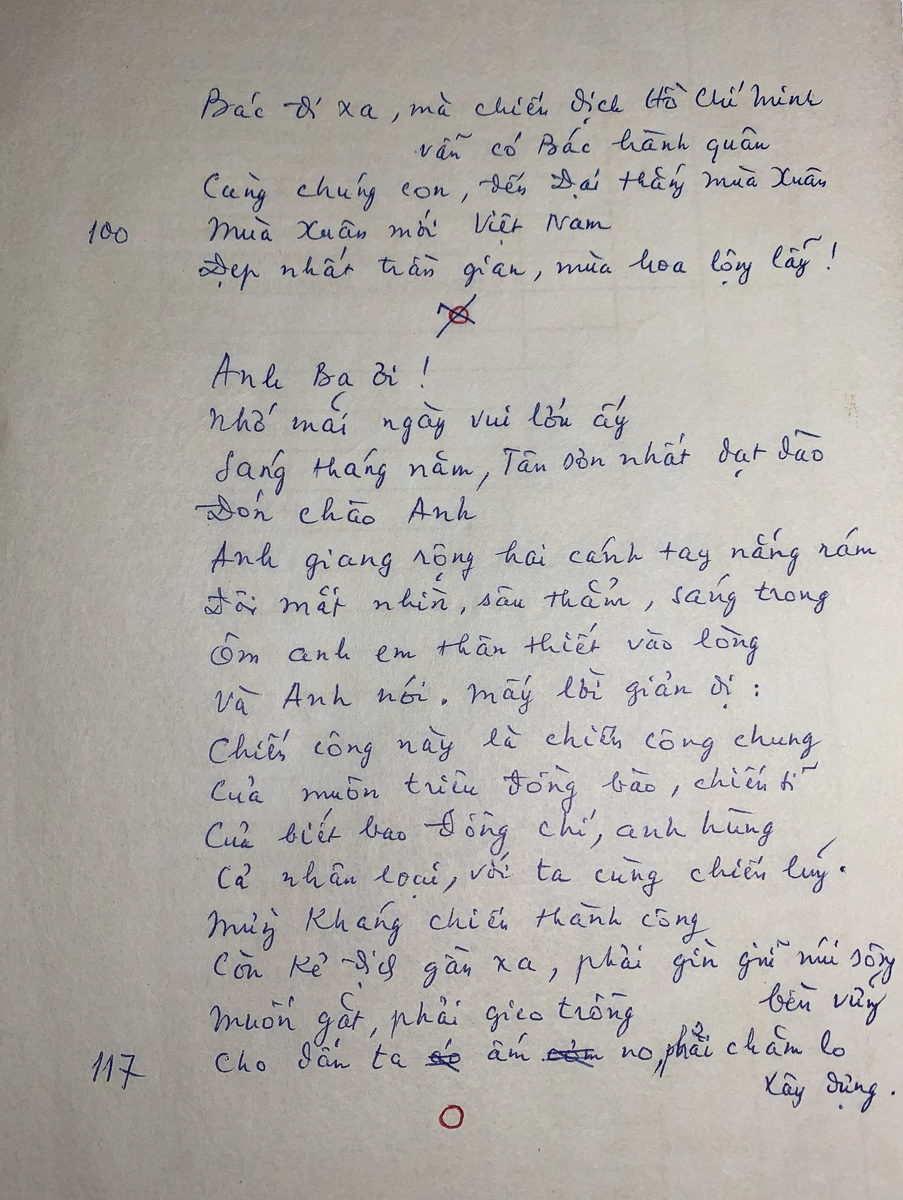 Bác đi xa, mà chiến dịch Hồ Chí Minh
vẫn có Bác hành quân
Cùng chúng con, đến Đại thắng mùa Xuân
100 Mùa Xuân mới Việt Nam
Đẹp nhất trần gian, mùa hoa lộng lẫy!
Anh Ba ơi!
Nhớ mãi ngày vui lớn ấy
Sang tháng năm, Tân Sơn Nhất dạt dào
Đón chào Anh
Anh giang rộng hai cánh tay nắng rám
Đôi mắt nhìn, sâu thẳm, sáng trong
Ôm anh em thân thiết vào lòng
Và Anh nói. mấy lời giản dị:
Chiến công này là chiến công chung
Của muôn triệu đồng bào, chiến sĩ
Của biết bao đồng chí, anh hùng
Cả nhân loại, với ta cùng chiến lũy.
Mừng Kháng chiến thành công
Còn Kẻ địch gần xa, phải gìn giữ núi sông
bền vững
Muốn gặt, phải gieo trồng
117 Cho dân ta ấm no, phải chăm lo
xây dựng.